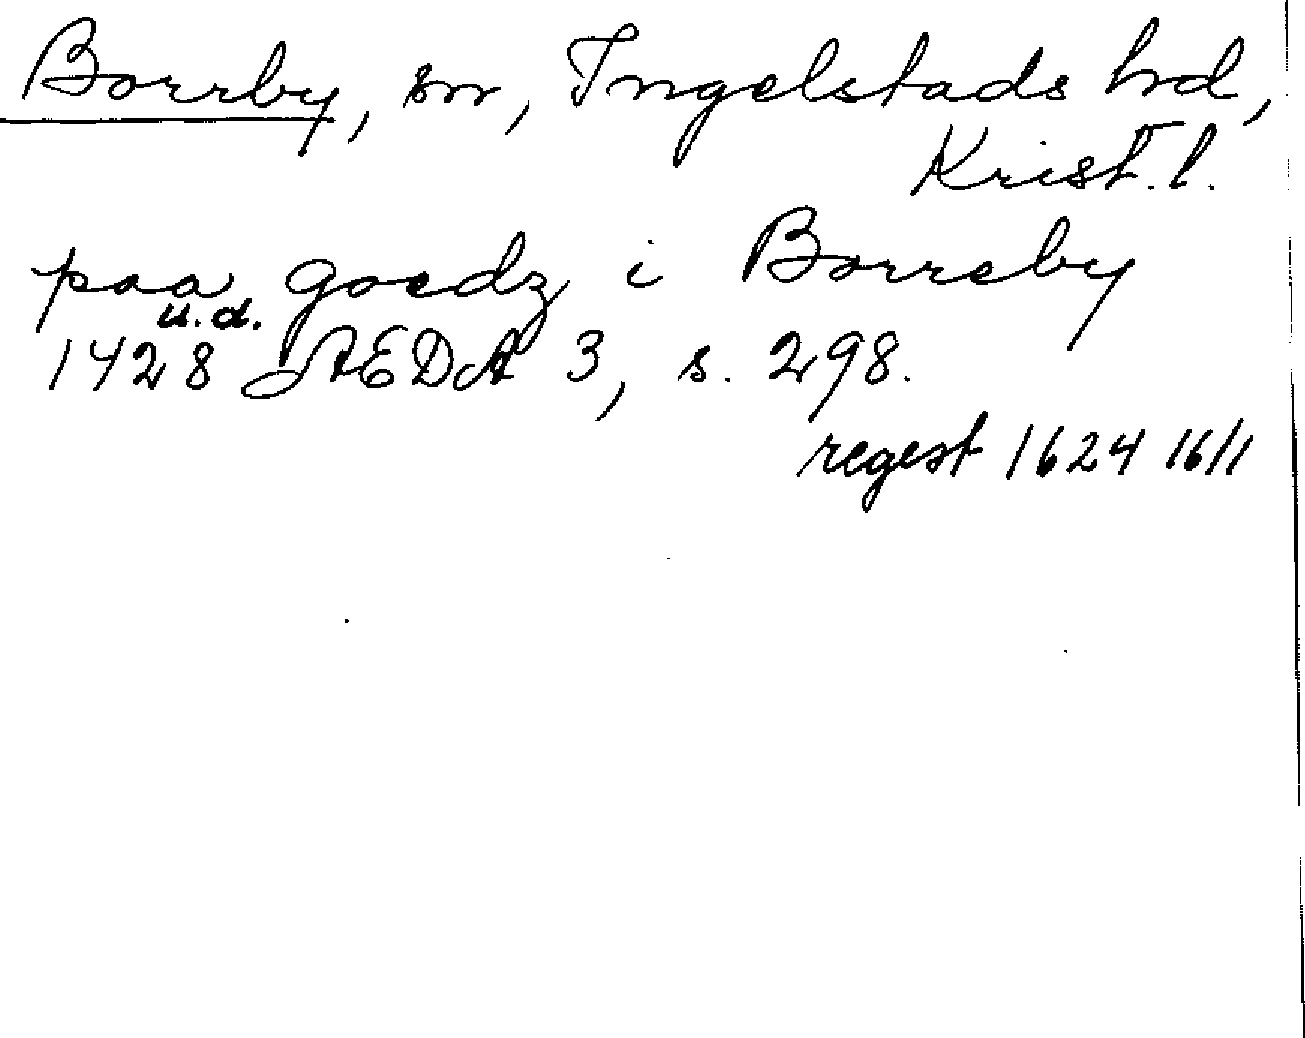 Borrby, sn, Ingelstads hd,
Krist. l.
paa goedz i Borreby
u.d.
1428 ÆDA 3, s. 298.
regest 1624 16/1